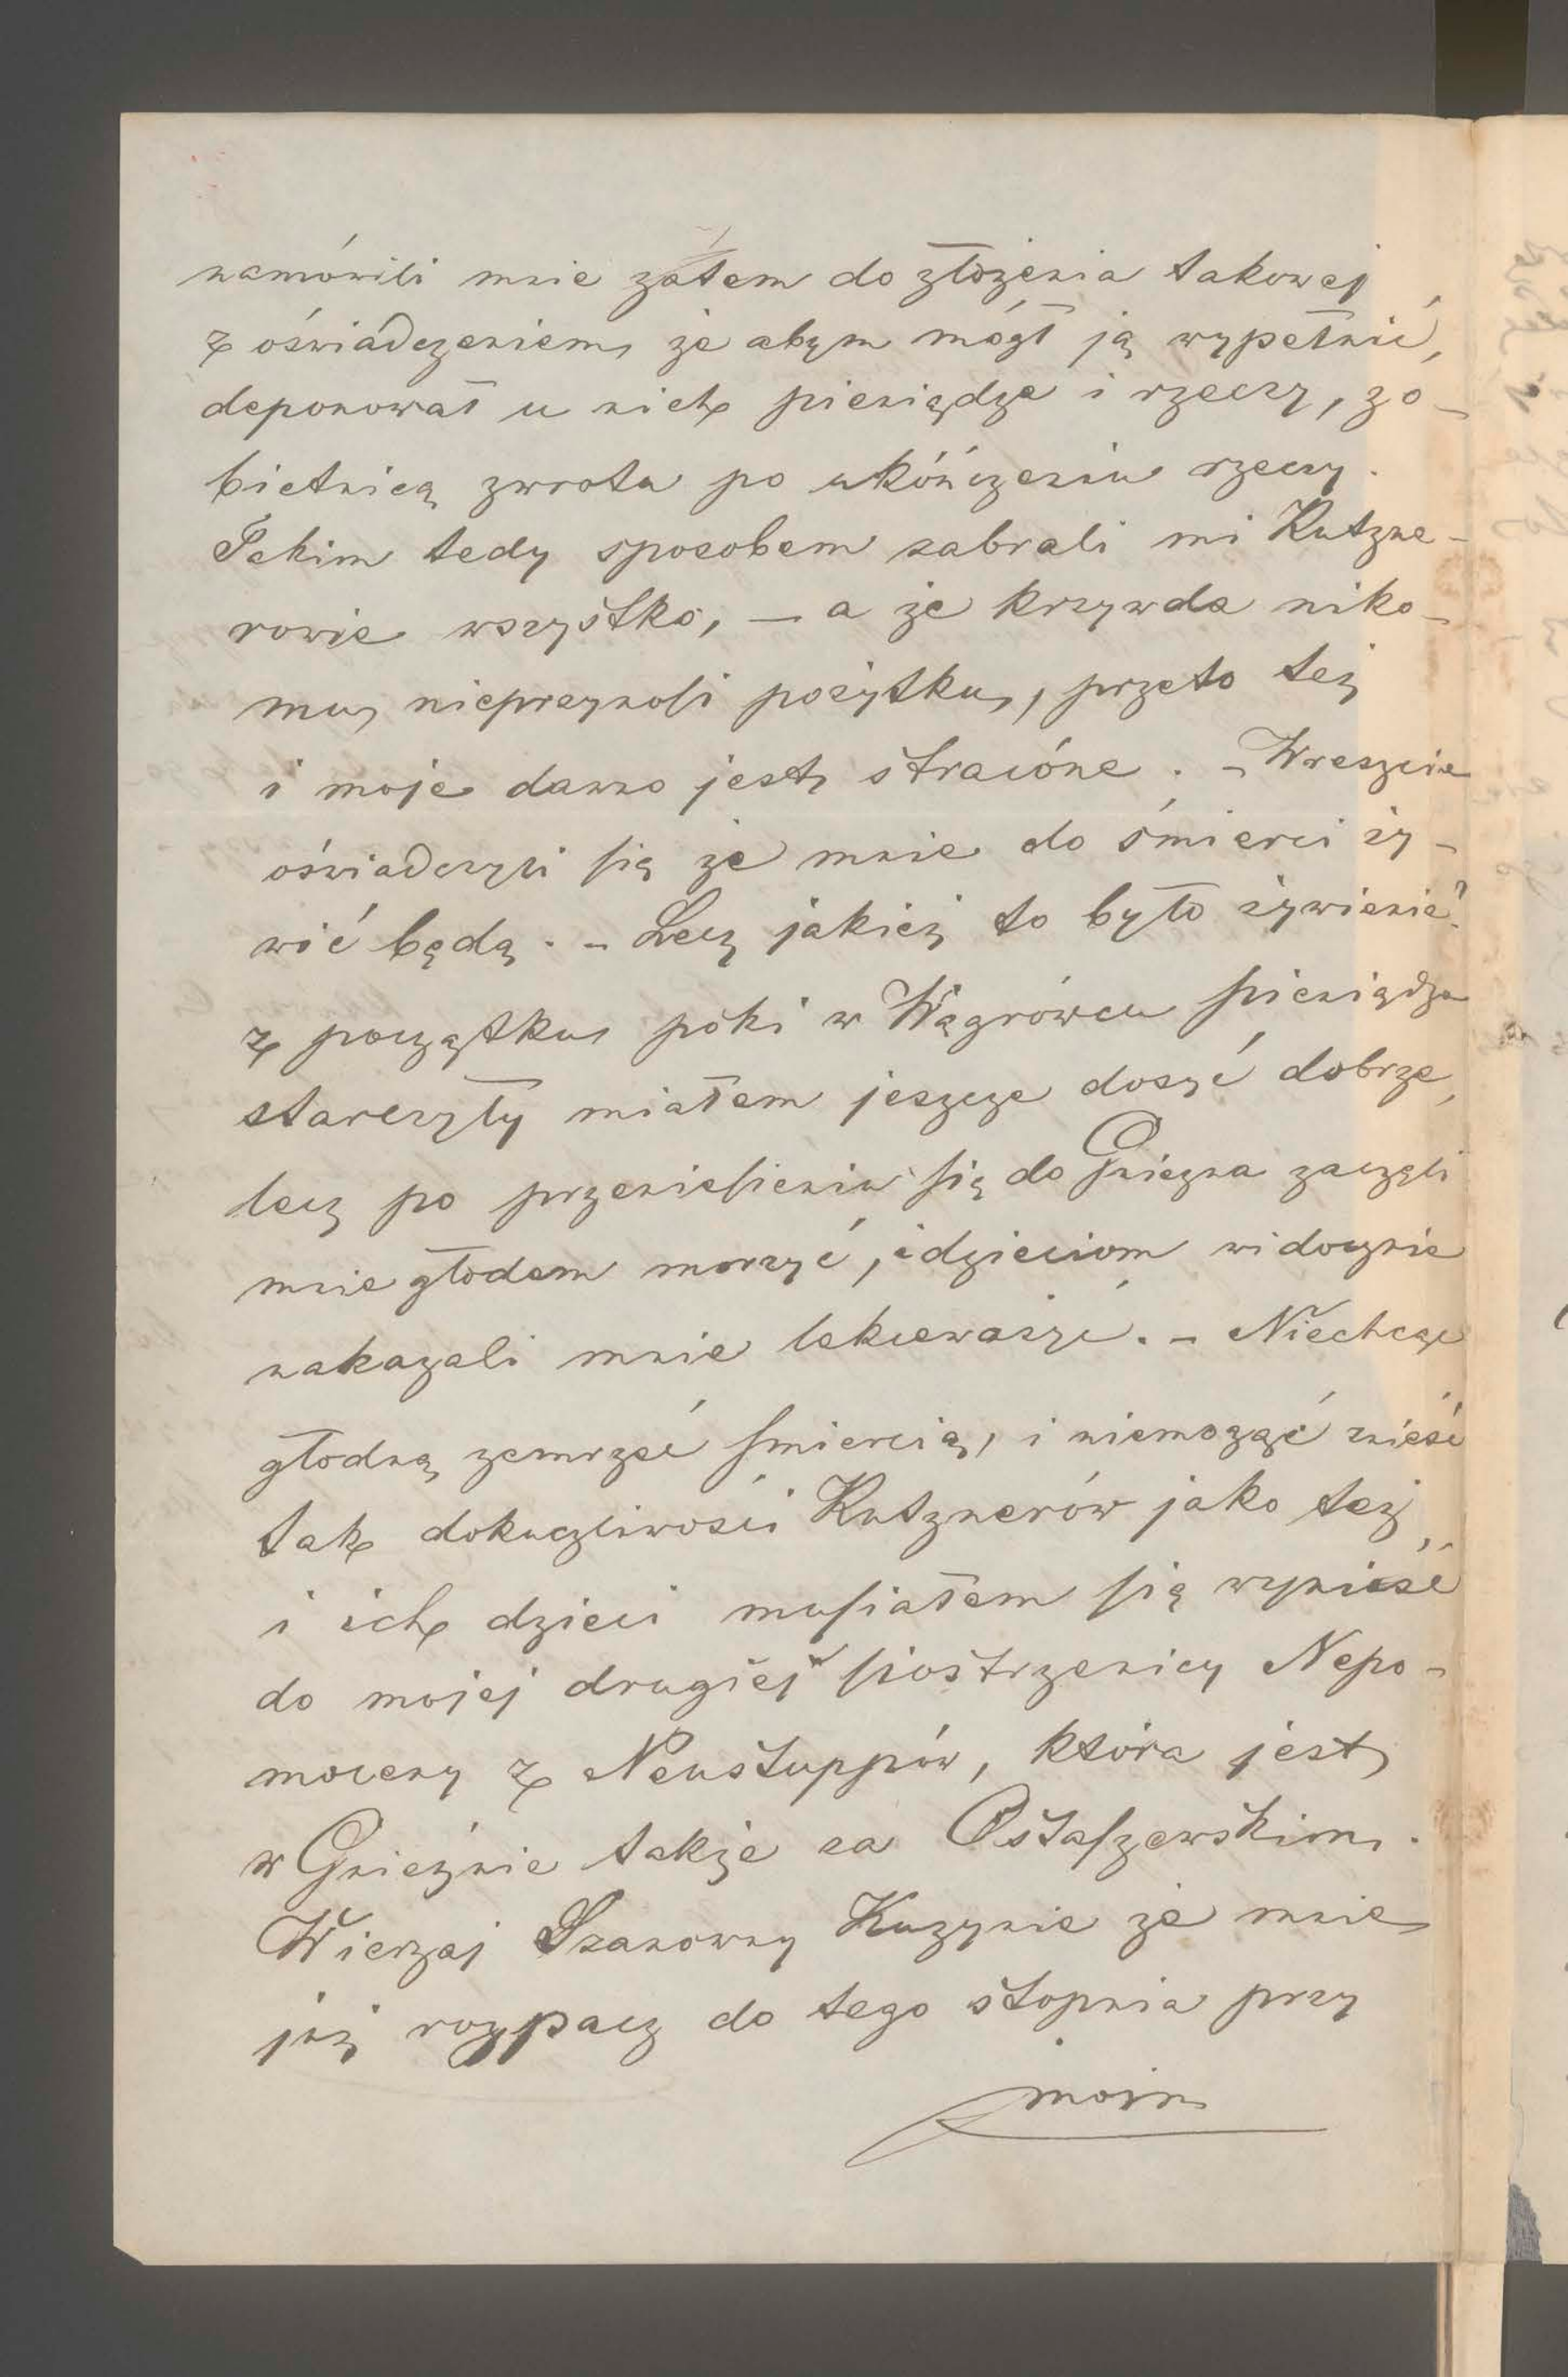 namówili mnie zatem do złożenia takowej,
z oświadczeniem, że abym mógł ją wypełnić,
deponował u nich pieniądze i rzeczy, z o-
bietnicą zwrotu po ukończeniu rzeczy.
Takim tedy sposobem zabrali mi Kutzne-
rowie wszystko, – a że krzywda niko-
mu nieprzynosi pożytku, przeto też
i moje dawno jest stracone. – Wreszcie
oświadczyli się że mnie do śmierci ży-
wić będą. – Lecz jakież to było żywienie?
z początku póki w Wągrówcu pieniądze
starczyły miałem jeszcze dosyć dobrze,
lecz po przeniesieniu się do Gniezna zaczęli
mnie głodem morzyć, i dzieciom widocznie
nakazali mnie lekceważyć. – Niechcąc
głodną zemrzeć śmiercią, i niemogąć znieść
tak dokuczliwości Kutznerów jako też,
i ich dzieci musiałem się wynieść
do mojej drugiej siostrzenicy Nepo-
moceny z Neustuppów, która jest
w Gnieźnie także za Ostaszewskim.
Wierzaj Szanowny Kuzynie że mnie
już rozpacz do tego stopnia przy